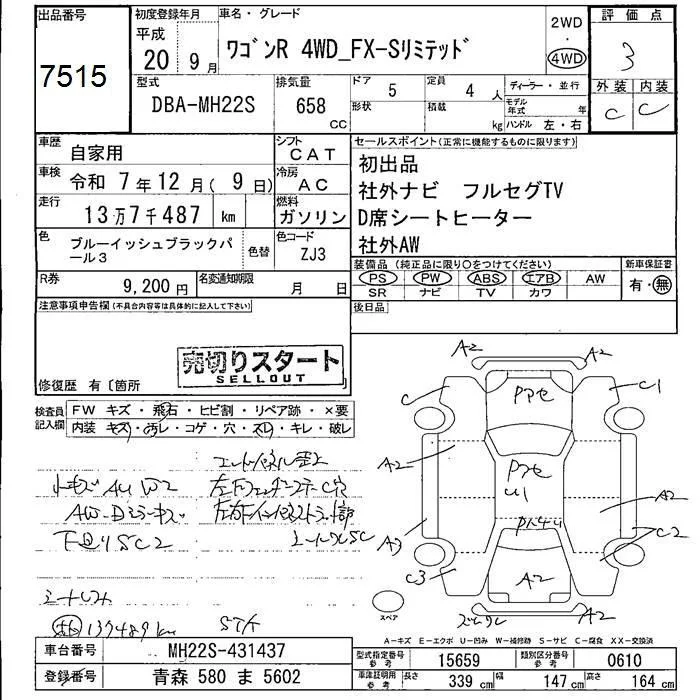 出品番号
7515
初度登録年月
平成
20 9月
車名・グレード
ワゴンR 4WD_FX-Sリミテッド
2WD
・
4WD
評価点
3
外装 内装
C C
型式
DBA-MH22S
排気量
658
CC
ドア
5
定員
4 人
形状
積載
kg
ディーラー・並行
モデル年式 年
ハンドル 左・右
車歴
自家用
シフト
CAT
車検
令和 7年12月( 9日)
冷房
AC
走行
13万7千487 km
燃料
ガソリン
色
ブルーイッシュブラックパール3
色替
色コード
ZJ3
R券
9,200円
名変通知期限
月 日
セールスポイント(正常に機能するものに限ります)
初出品
社外ナビ フルセグTV
D席シートヒーター
社外AW
装備品(純正品に限り○をつけてください)
PS PW ABS エアB AW
SR ナビ TV カワ
新車保証書
有・無
後日品
注意事項申告欄(不具合内容等は具体的に記入して下さい)
売切りスタート
SELLOUT
修復歴 有〔箇所
検査員記入欄
FW キズ・飛石・ヒビ割・リペア跡・×要
内装 キズ・汚レ・コゲ・穴・スレ・キレ・破レ
小キズ AU W2
AW・Dミラーキズ
下廻りSC2
シートしみ
137489km
STA
A2 A2
C C1
Pアセ
A2
Pアセ
U1
A2
C2
A3
C3
A2
スペア
A-キズ E-エクボ U-凹み W-補修跡 S-サビ C-腐食 XX-交換済
車台番号
MH22S-431437
登録番号
青森 580 ま 5602
型式指定番号
参考
15659
類別区分番号
参考
0610
車検証明用
参考
長さ 339 cm
幅 147 cm
高さ 164 cm